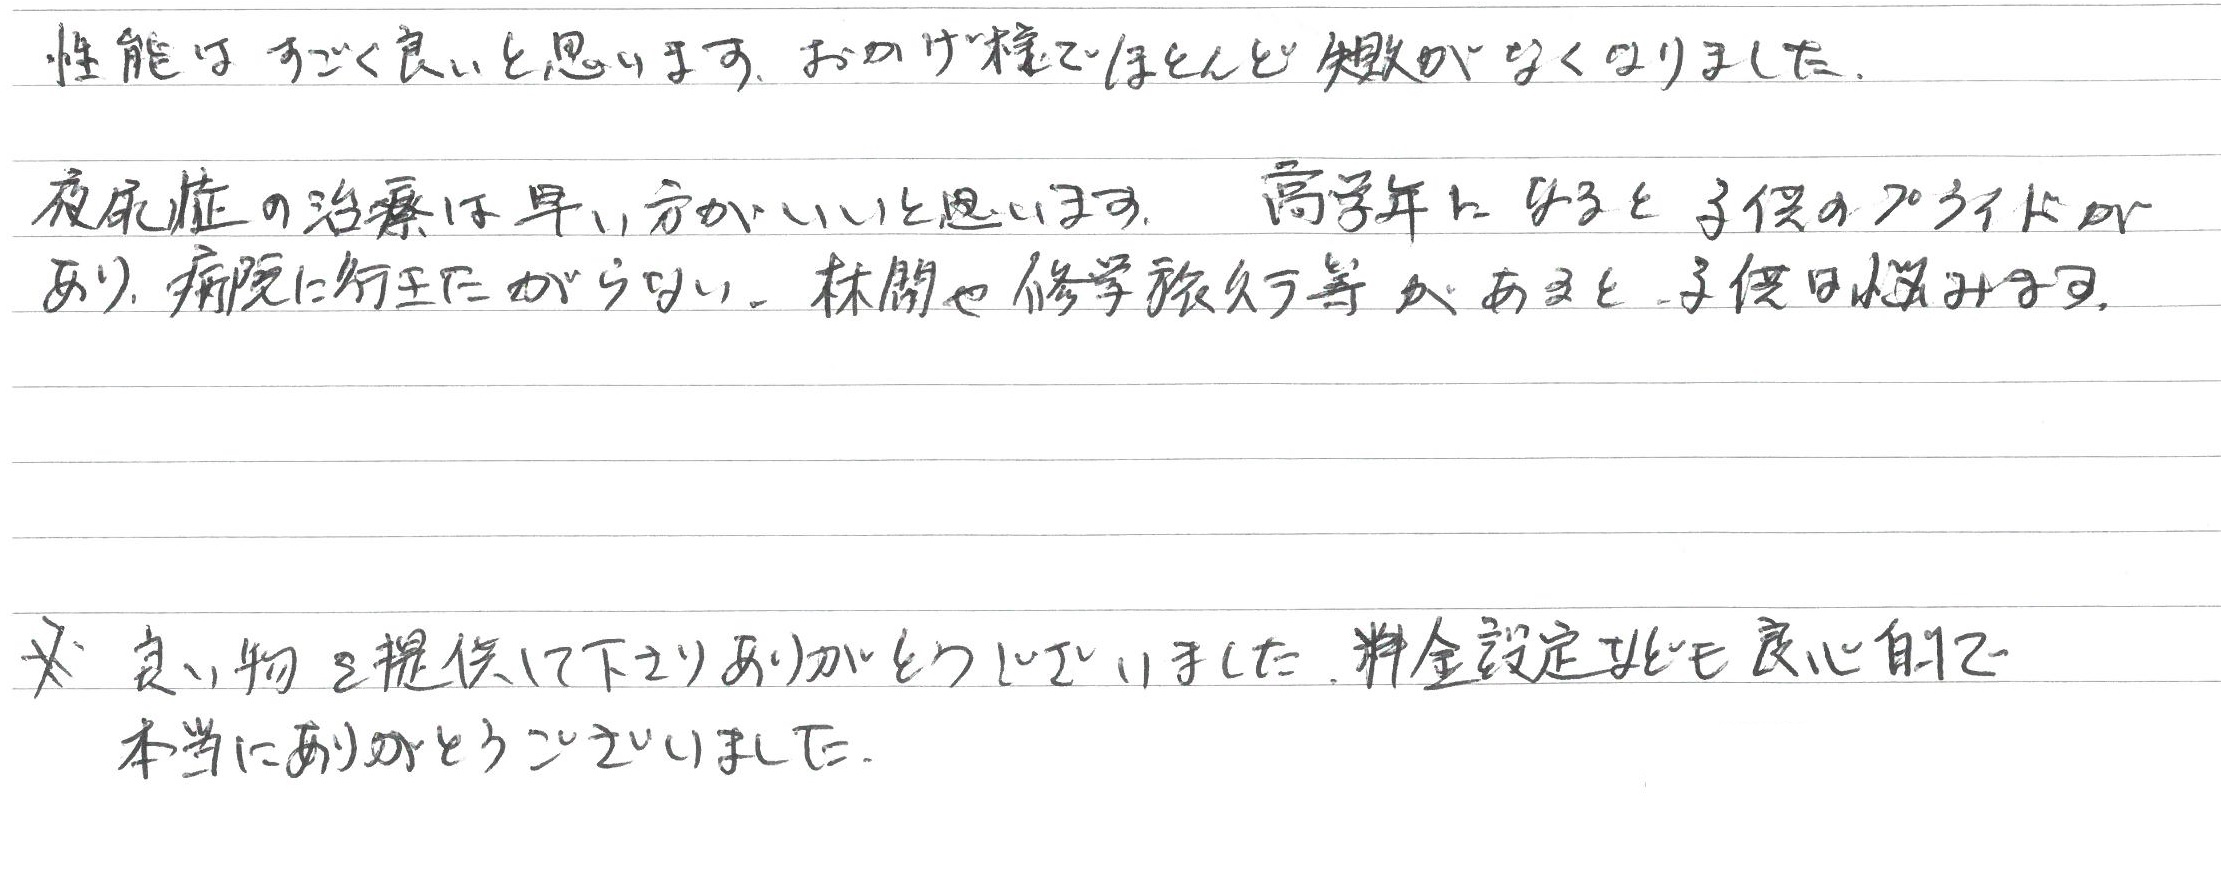 性能はすごく良いと思います。おかげ様でほとんど失敗がなくなりました。
夜尿症の治療は早い方がいいと思います。 高学年になると子供のプライドが
あり、病院に行きたがらない。林間や修学旅行等があると子供は悩みます。
※ 良い物を提供して下さりありがとうございました。料金設定なども良心的で
本当にありがとうございました。